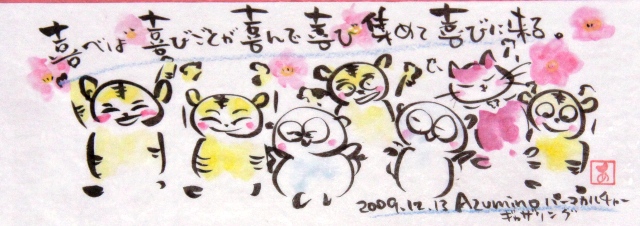 喜べば喜びごとが喜んで喜び集めて喜びに来る。
2009.12.13 Azumino パーマカルチャー
ギャザリング
あ